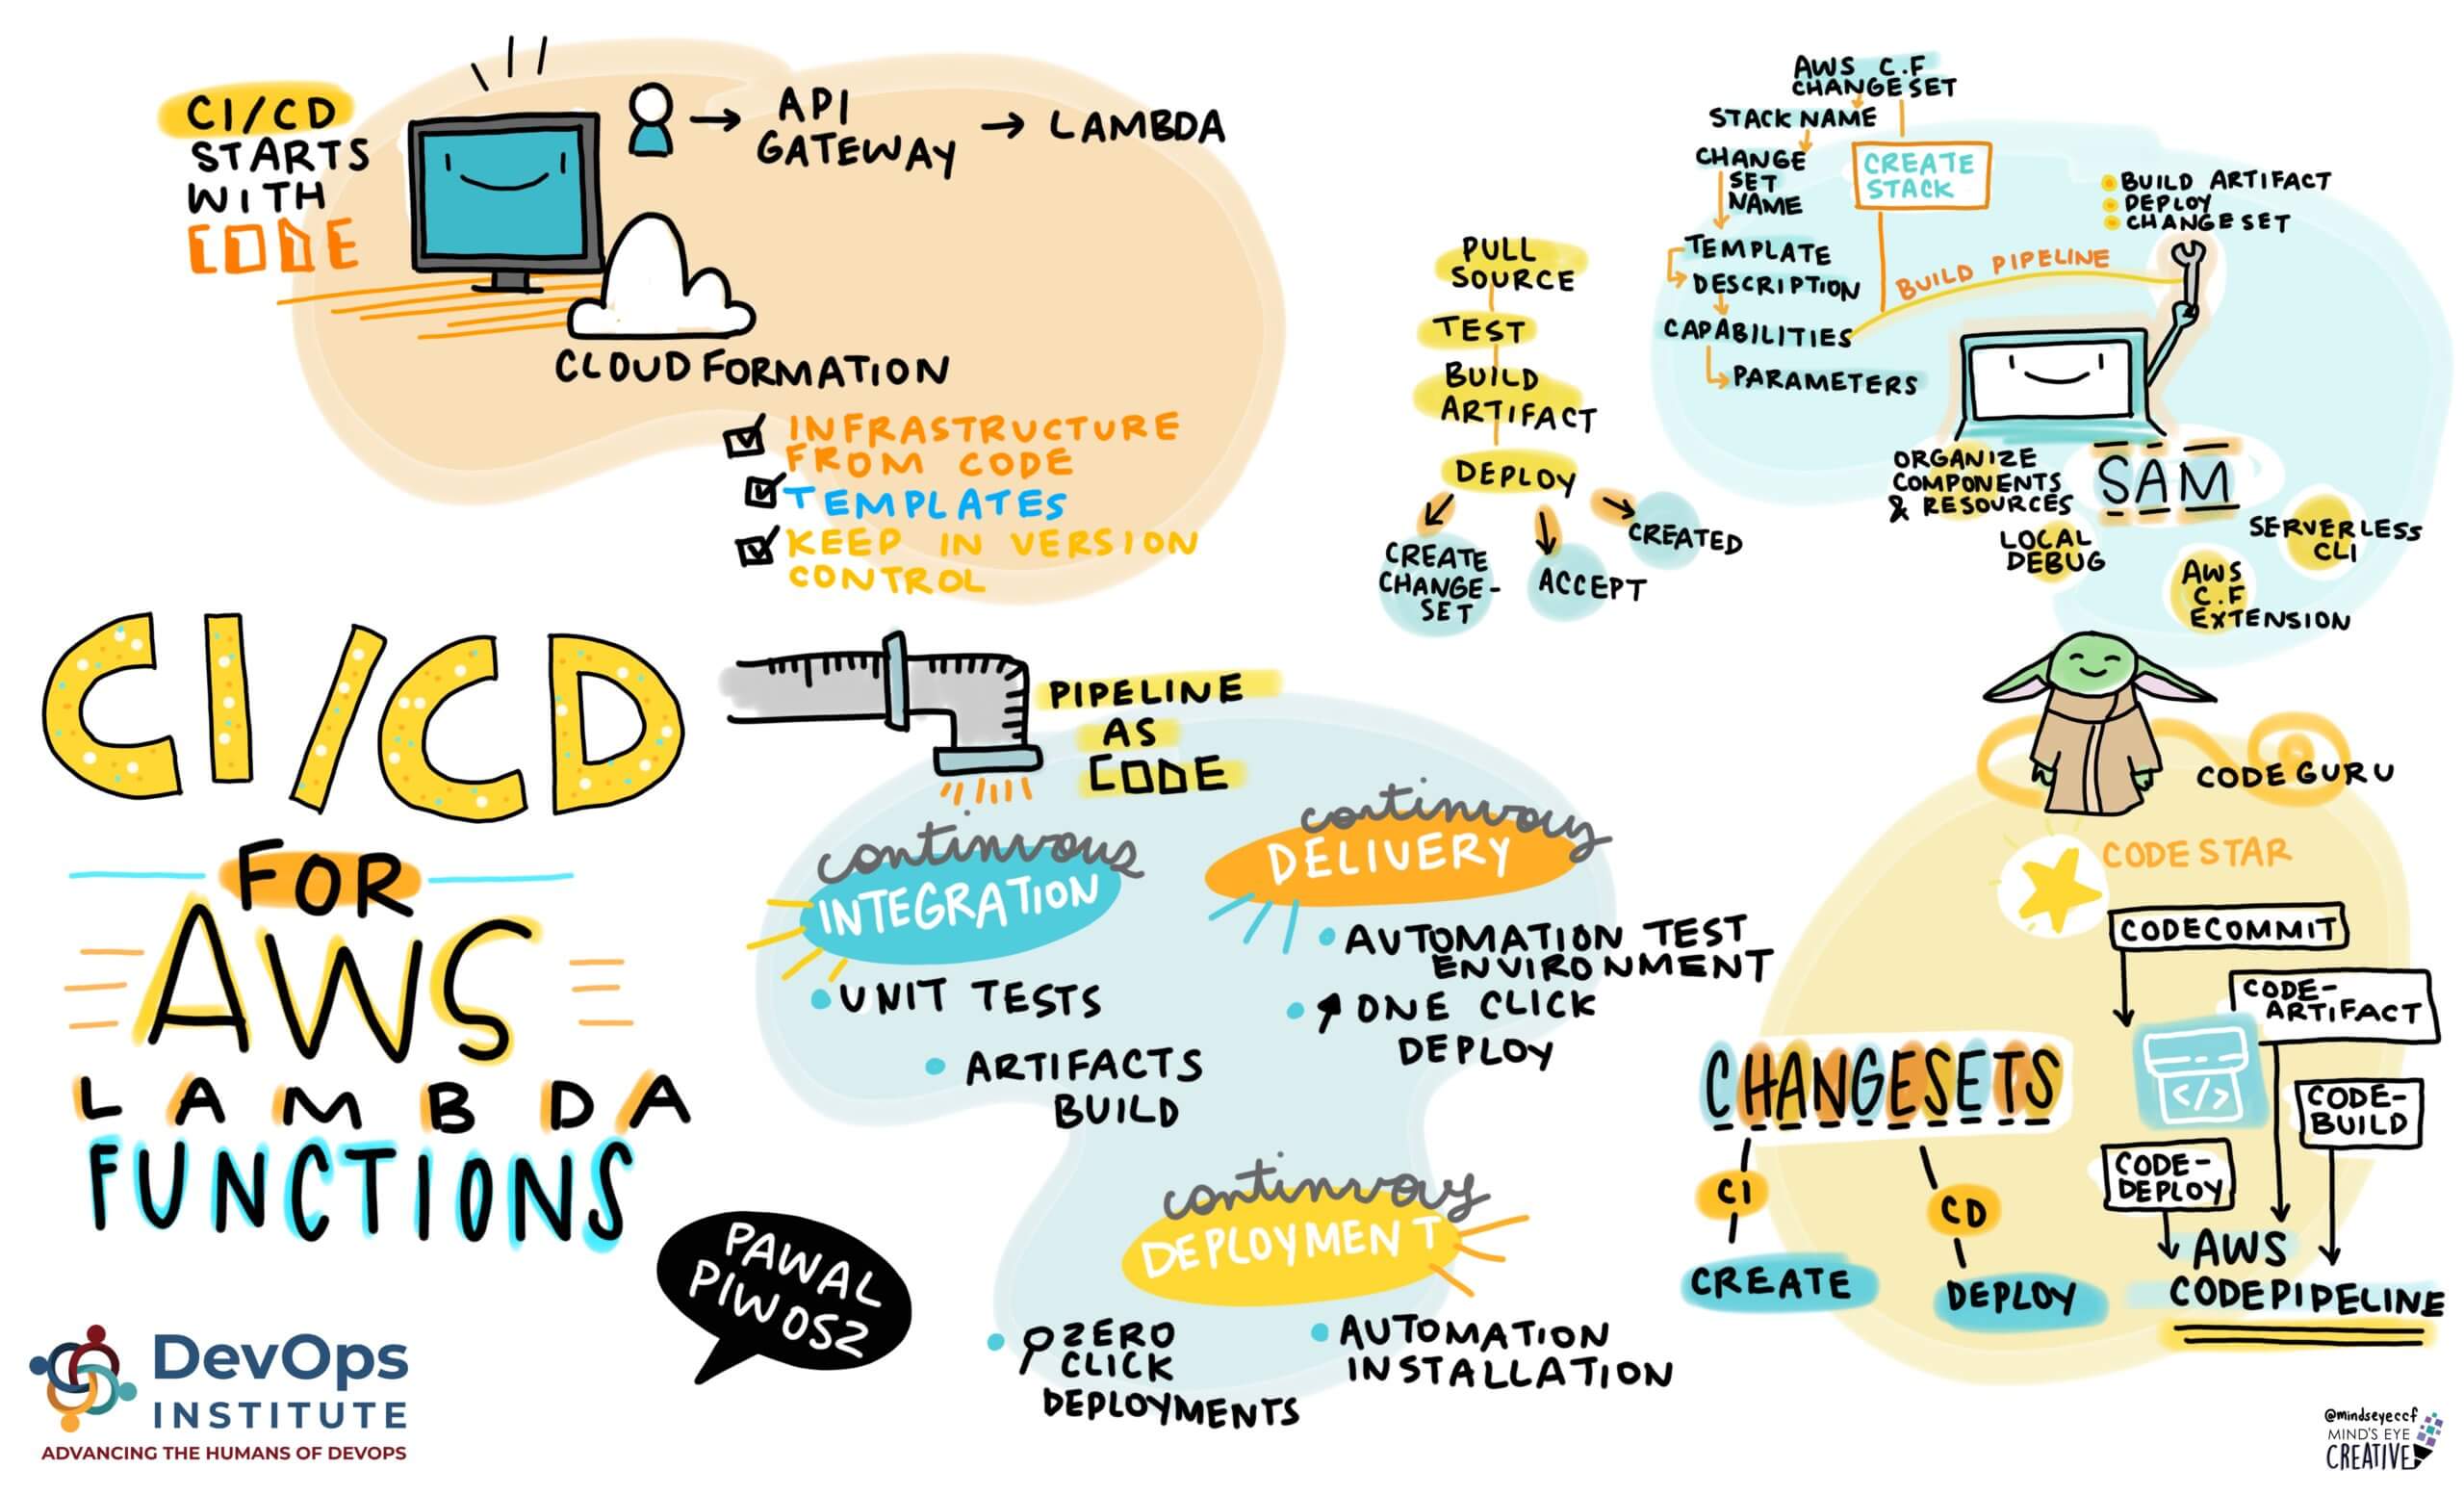 CI/CD
STARTS
WITH
CODE
API
GATEWAY
LAMBDA
CLOUD FORMATION
INFRASTRUCTURE
FROM CODE
TEMPLATES
KEEP IN VERSION
CONTROL
PULL
SOURCE
TEST
BUILD
ARTIFACT
DEPLOY
CREATE
CHANGE-
SET
ACCEPT
CREATED
AWS C.F
CHANGESET
STACK NAME
CHANGE
SET
NAME
CREATE
STACK
TEMPLATE
DESCRIPTION
CAPABILITIES
PARAMETERS
BUILD PIPELINE
BUILD ARTIFACT
DEPLOY
CHANGESET
ORGANIZE
COMPONENTS
& RESOURCES
SAM
LOCAL
DEBUG
SERVERLESS
CLI
AWS
C.F
EXTENSION
CI/CD
FOR
AWS
LAMBDA
FUNCTIONS
PAWAL
PIWOSZ
DevOps
INSTITUTE
ADVANCING THE HUMANS OF DEVOPS
PIPELINE
AS
CODE
continuous
INTEGRATION
UNIT TESTS
ARTIFACTS
BUILD
continuous
DELIVERY
AUTOMATION TEST
ENVIRONMENT
ONE CLICK
DEPLOY
continuous
DEPLOYMENT
ZERO
CLICK
DEPLOYMENTS
AUTOMATION
INSTALLATION
CODE GURU
CODE STAR
CODECOMMIT
CODE-
ARTIFACT
</>
CODE-
BUILD
CODE-
DEPLOY
AWS
CODEPIPELINE
CHANGESETS
CI
CREATE
CD
DEPLOY
@mindseyeccf
MIND'S EYE
CREATIVE